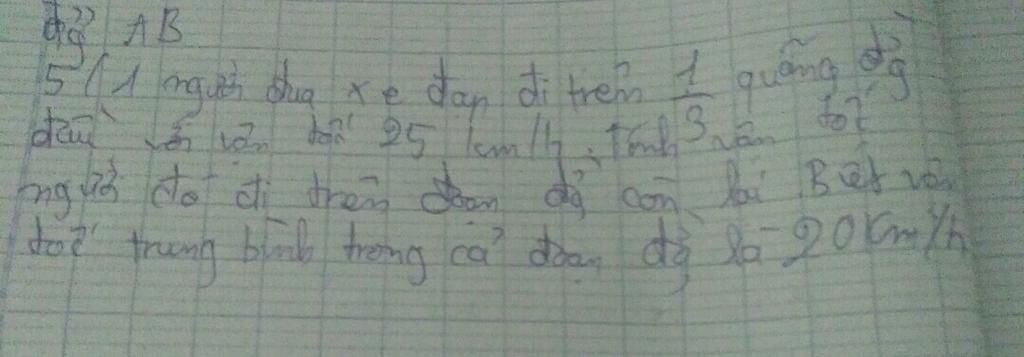 đg AB
5/ 1 người đua xe đạp đi trên 1/3 quãng đg
đầu với vận tốc 25 km/h. Tính vận tốc
người đó đi trên đoạn đg còn lại Biết vận
tốc trung bình trong cả đoạn đg là 20 Km/h